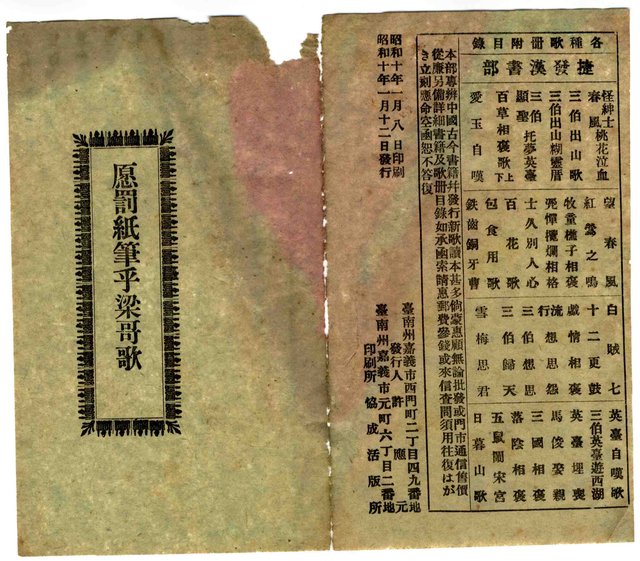 各種歌冊附目錄
捷發漢書部
怪紳士桃花泣血
春風
三伯出山歌
三伯出山糊靈厝
三伯托夢英臺
顯聖
百草相褒歌上下
愛玉自嘆
望春風
紅鶯之鳴
牧童樵子相褒
死憚攬爛相格
士久別人心
百花歌
包食用歌
鉄齒銅牙曹
白賊七
十二更鼓
戲情相褒
流想思怨
行
三伯想思
三伯歸天
雪梅思君
英臺自嘆歌
三伯英臺遊西湖
英臺埋喪
馬俊娶親
三國相褒
落陰相褒
五鼠鬧宋宮
日暮山歌
本部專辨中國古今書籍幷發行新歌讀本甚多倘蒙惠顧無論批發或門市通信售價
從廉另備詳細書籍及歌冊目錄如承函索請惠郵費參錢或來信查問須用往復はが
き立刻應命空函恕不答復
臺南州嘉義市西門町二丁目四九番地
發行人 許應元
臺南州嘉義市元町六丁目二番地
印刷所 協成活版所
昭和十年一月八日印刷
昭和十年一月十二日發行
愿罰紙筆乎梁哥歌